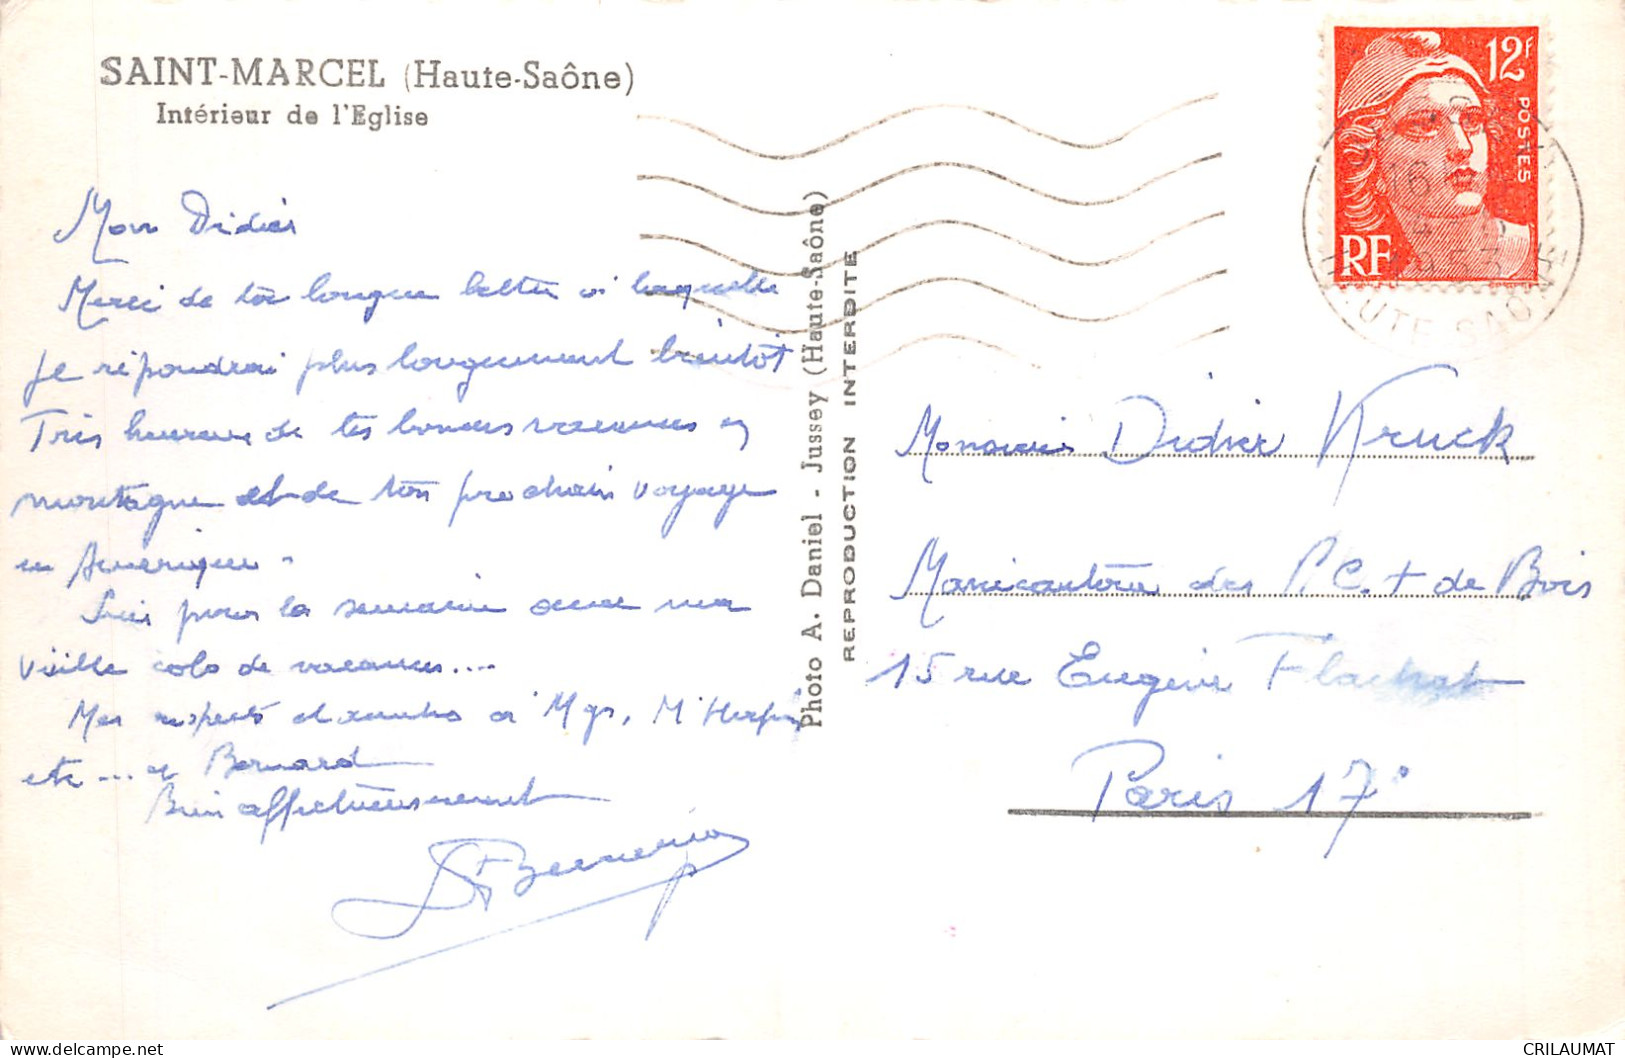 SAINT-MARCEL (Haute-Saône)
Intérieur de l'Eglise
Mon Didier
Merci de ta longue lettre à laquelle
je répondrai plus longuement bientôt
Très heureux de tes bonnes vacances en
montagne et de ton prochain voyage
en Amérique.
Suis pour la semaine avec ma
vieille colo de vacances....
Mes respects et amitiés à Mgr, M
etc... et Bernard
Bien affectueusement
Photo A. Daniel - Jussey (Haute-Saône)
REPRODUCTION INTERDITE
12F
POSTES
RF
16
1953
HAUTE-SAÔNE
Monsieur Didier Kruck
Manécanterie des P.C. + de Bois
15 rue Eugène Flachat
Paris 17°
CRILAUMAT